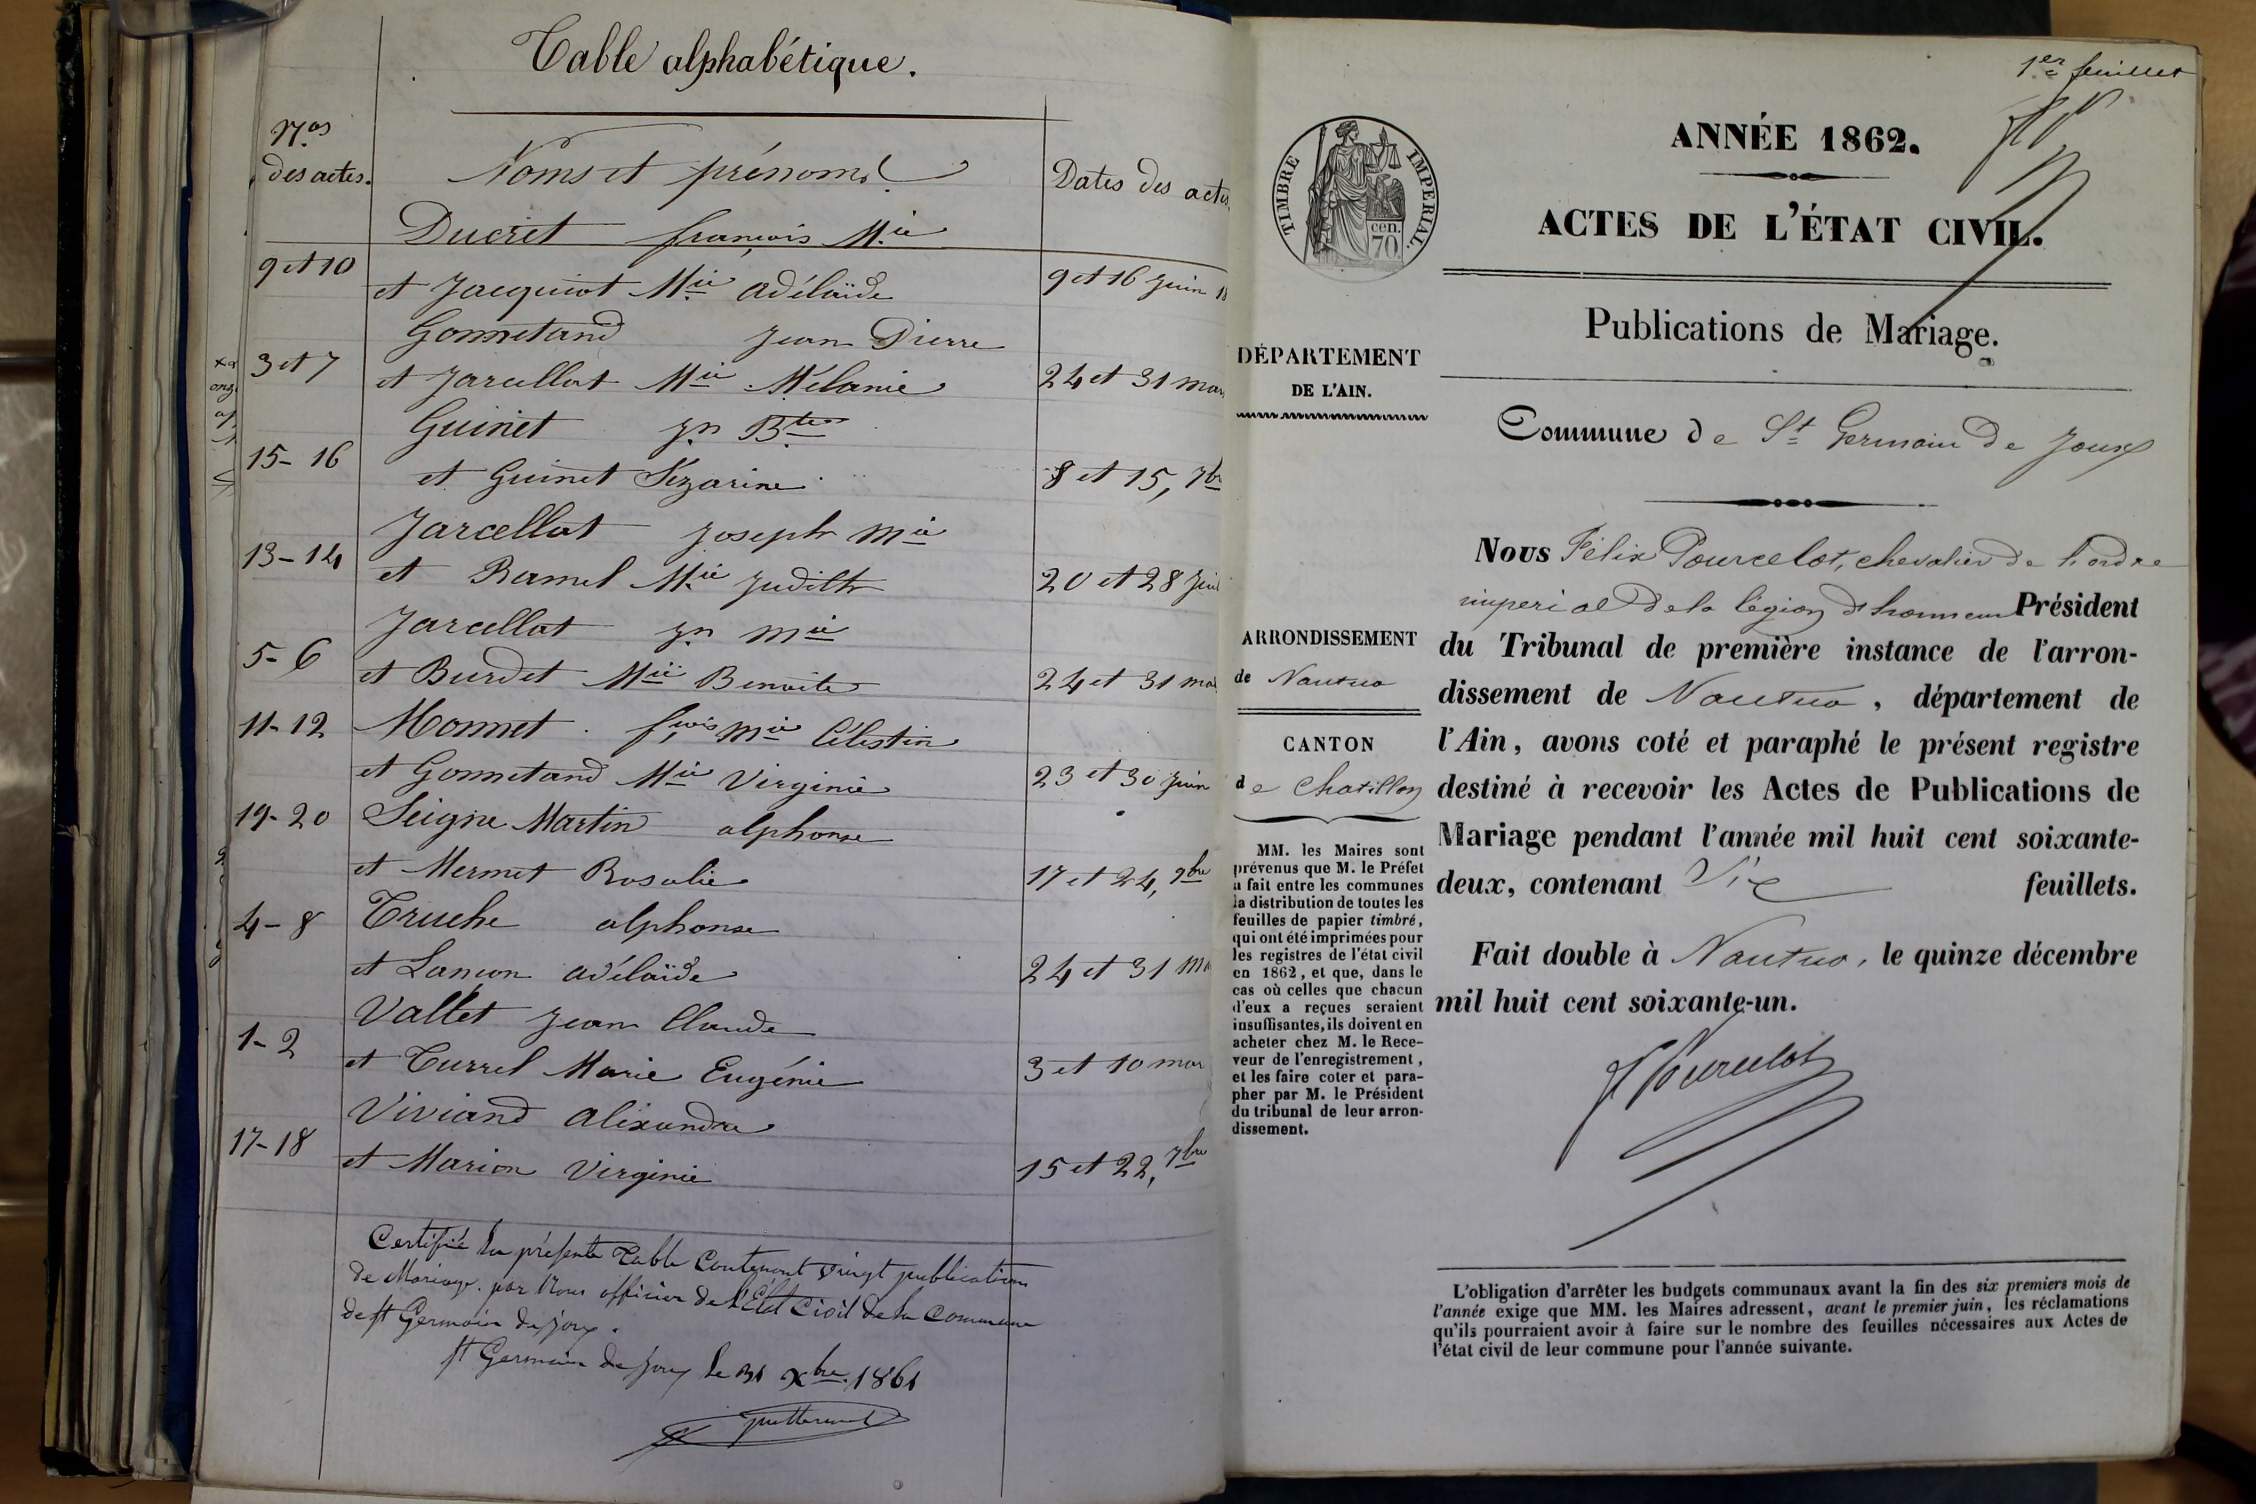 Table alphabétique.
Nos
des actes.
Noms et prénoms
Dates des actes
Ducret françois Mie
9 et 10
et Jacquiot Mie adélaïde
9 et 16 juin
Gonnetand Jean Pierre
3 et 7
et Jarcellat Mie Mélanie
24 et 31 mars
Guinet Jn Bte
15-16
et Guinet Sézarine
8 et 15, 7bre
Jarcellat Joseph Mie
13-14
et Ramel Mie Judith
20 et 28 juil
Jarcellat Jn Mie
5-6
et Burdet Mie Benoite
24 et 31 mars
11-12
Monnet fçois Mie Célestin
et Gonnetand Mie Virginie
23 et 30 juin
19-20
Seigne Martin alphonse
et Mermet Rosalie
17 et 24, 9bre
4-8
Truche alphonse
et Lançon adélaïde
24 et 31 ma
Vallet Jean Claude
1-2
et Turrel Marie Eugénie
3 et 10 mar
Viviand alixandre
17-18
et Marion Virginie
15 et 22, 7bre
Certifié la présente Table Contenant vingt publications
de Mariage. par Nous officier de l'État Civil de la Commune
de st Germain de joux.
st Germain de Joux le 31 Xbre 1861
1er feuillet
ANNÉE 1862.
TIMBRE IMPERIAL.
cen.
70.
ACTES DE L'ÉTAT CIVIL.
Publications de Mariage.
DÉPARTEMENT
DE L'AIN.
Commune de St Germain de Joux
Nous Félix Pourcelot, chevalier de l'ordre
imperial de la légion d'honneur Président
du Tribunal de première instance de l'arron-
dissement de Nantua, département de
l'Ain, avons coté et paraphé le présent registre
destiné à recevoir les Actes de Publications de
Mariage pendant l'année mil huit cent soixante-
deux, contenant Six feuillets.
Fait double à Nantua, le quinze décembre
mil huit cent soixante-un.
F Pourcelot
ARRONDISSEMENT
de Nantua
CANTON
de Chatillon
MM. les Maires sont
prévenus que M. le Préfet
a fait entre les communes
la distribution de toutes les
feuilles de papier timbré,
qui ont été imprimées pour
les registres de l'état civil
en 1862, et que, dans le
cas où celles que chacun
d'eux a reçues seraient
insuffisantes, ils doivent en
acheter chez M. le Rece-
veur de l'enregistrement,
et les faire coter et para-
pher par M. le Président
du tribunal de leur arron-
dissement.
L'obligation d'arrêter les budgets communaux avant la fin des six premiers mois de
l'année exige que MM. les Maires adressent, avant le premier juin, les réclamations
qu'ils pourraient avoir à faire sur le nombre des feuilles nécessaires aux Actes de
l'état civil de leur commune pour l'année suivante.